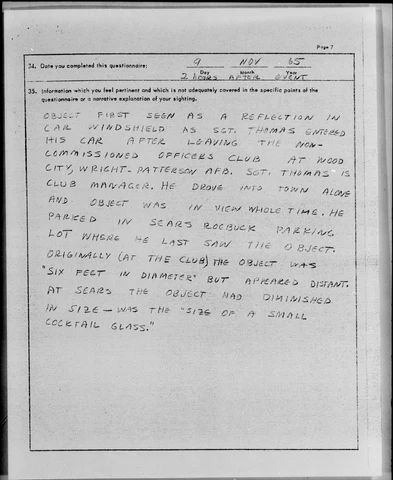 Page 7
34. Date you completed this questionnaire: 9 NOV 65
Day Month Year
2 HOURS AFTER EVENT
35. Information which you feel pertinent and which is not adequately covered in the specific points of the
questionnaire or a narrative explanation of your sighting.
OBJECT FIRST SEEN AS A REFLECTION IN
CAR WINDSHIELD AS SGT. THOMAS ENTERED
HIS CAR AFTER LEAVING THE NON-
COMMISSIONED OFFICERS CLUB AT WOOD
CITY, WRIGHT-PATTERSON AFB. SGT. THOMAS IS
CLUB MANAGER. HE DROVE INTO TOWN ALONE
AND OBJECT WAS IN VIEW WHOLE TIME. HE
PARKED IN SEARS ROEBUCK PARKING
LOT WHERE HE LAST SAW THE OBJECT.
ORIGINALLY (AT THE CLUB) THE OBJECT WAS
"SIX FEET IN DIAMETER" BUT APPEARED DISTANT.
AT SEARS THE OBJECT HAD DIMINISHED
IN SIZE - WAS THE "SIZE OF A SMALL
COCKTAIL GLASS."